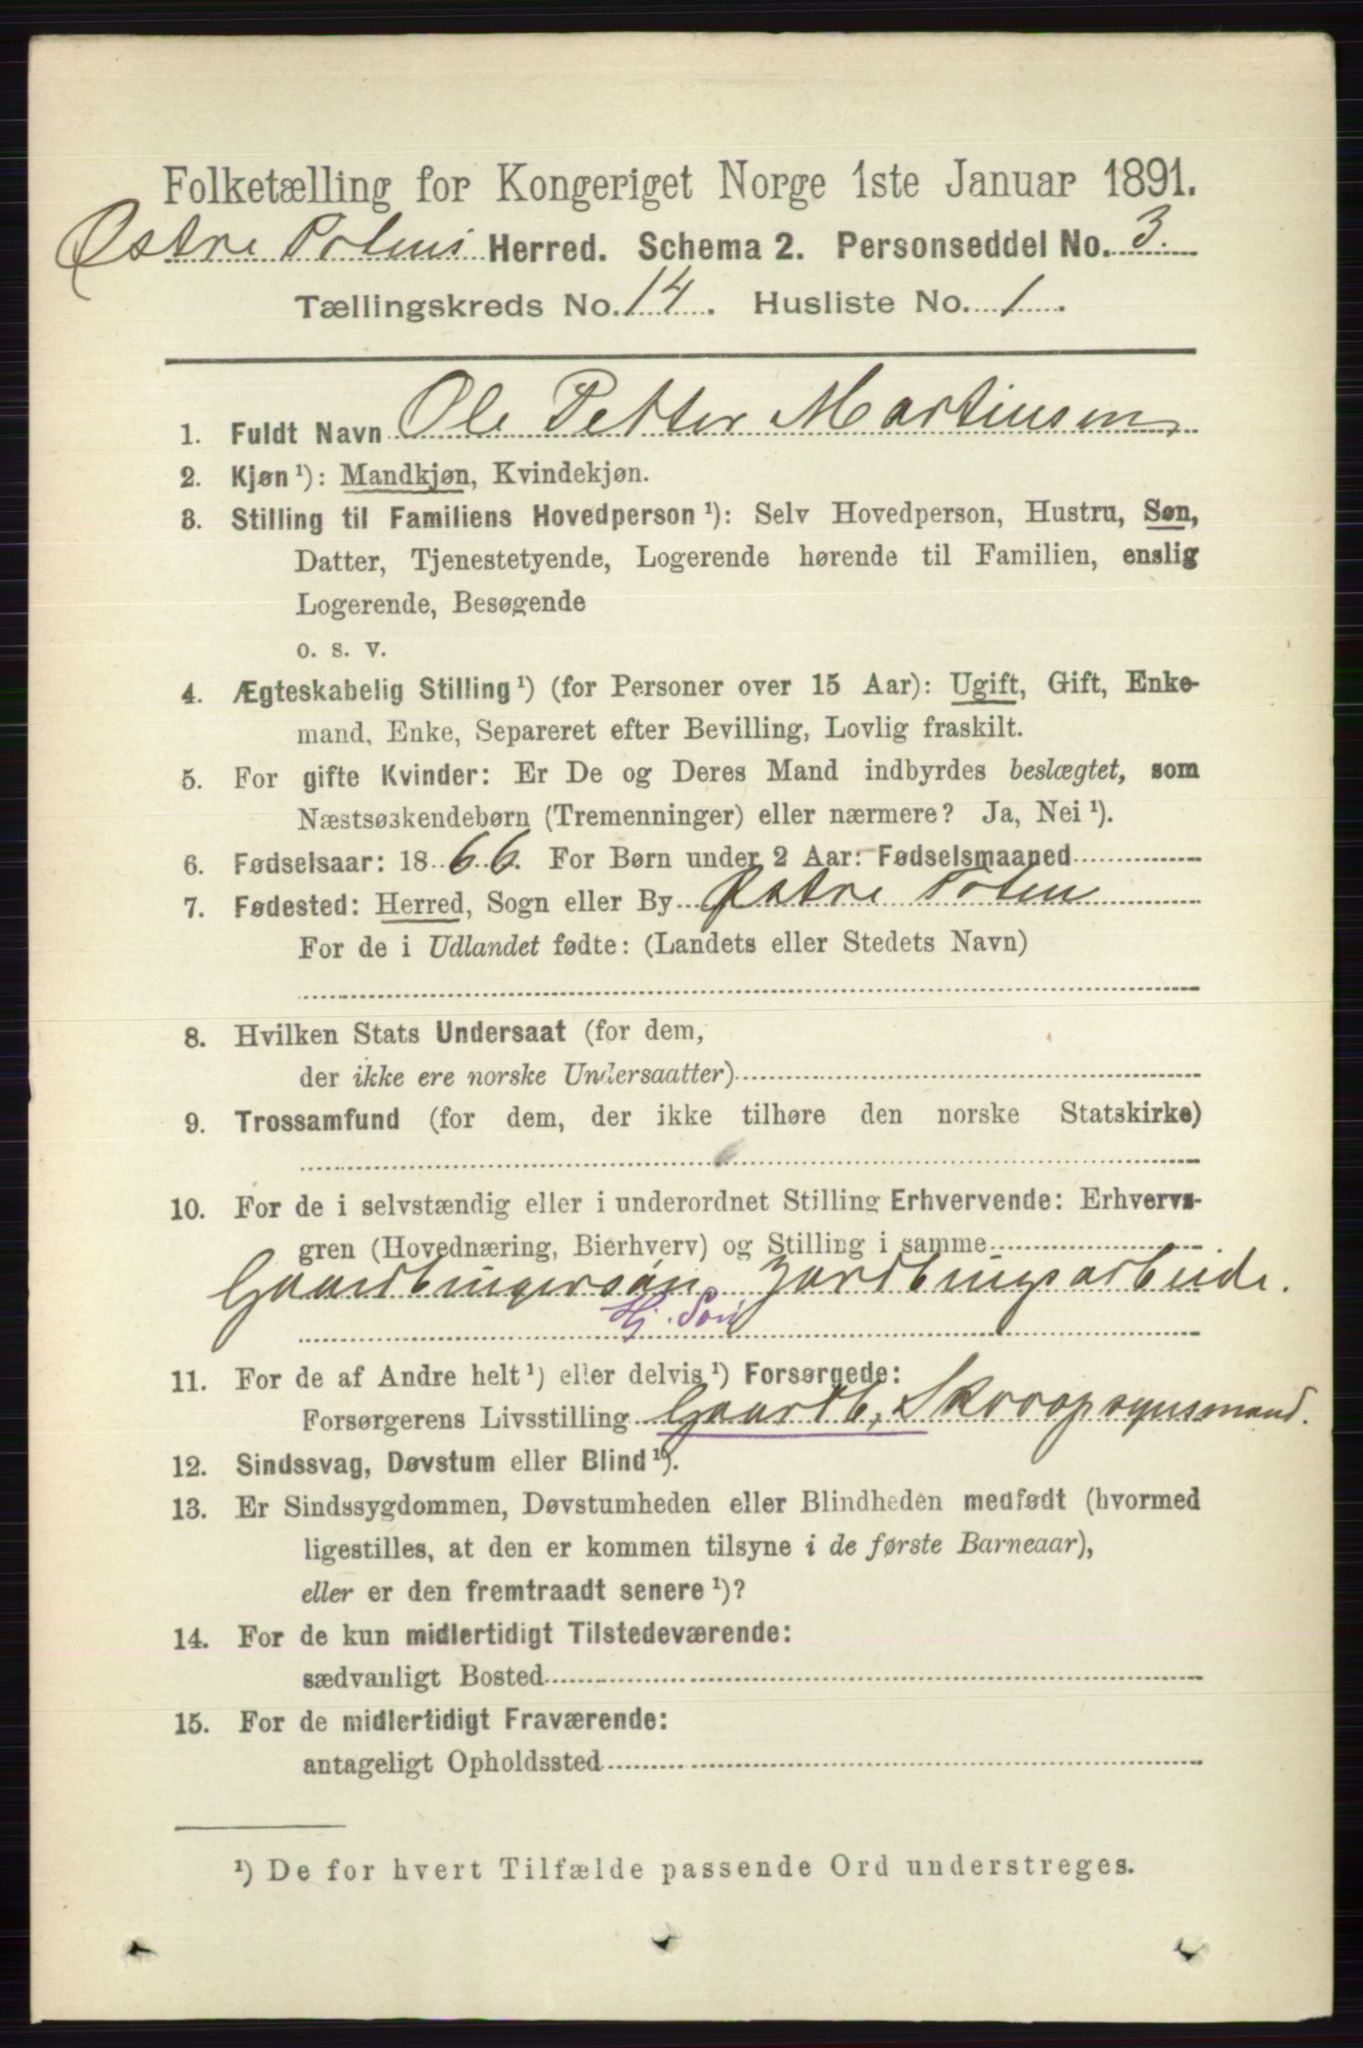 Folketælling for Kongeriget Norge 1ste Januar 1891.
Østre Totens Herred. Schema 2. Personseddel No. 3.
Tællingskreds No. 14. Husliste No. 1.
1. Fuldt Navn Ole Petter Martinsen
2. Kjøn ¹): Mandkjøn, Kvindekjøn.
3. Stilling til Familiens Hovedperson ¹): Selv Hovedperson, Hustru, Søn,
Datter, Tjenestetyende, Logerende hørende til Familien, enslig
Logerende, Besøgende
o. s. v.
4. Ægteskabelig Stilling ¹) (for Personer over 15 Aar): Ugift, Gift, Enke-
mand, Enke, Separeret efter Bevilling, Lovlig fraskilt.
5. For gifte Kvinder: Er De og Deres Mand indbyrdes beslægtet, som
Næstsøskendebørn (Tremenninger) eller nærmere? Ja, Nei ¹).
6. Fødselsaar: 1866. For Børn under 2 Aar: Fødselsmaaned
7. Fødested: Herred, Sogn eller By Østre Toten
For de i Udlandet fødte: (Landets eller Stedets Navn)
8. Hvilken Stats Undersaat (for dem,
der ikke ere norske Undersaatter)
9. Trossamfund (for dem, der ikke tilhøre den norske Statskirke)
10. For de i selvstændig eller i underordnet Stilling Erhvervende: Erhvervs-
gren (Hovednæring, Bierhverv) og Stilling i samme
Gaardbrugersøn Jordbrugsarbeide.
Hj. Søn
11. For de af Andre helt ¹) eller delvis ¹) Forsørgede:
Forsørgerens Livsstilling Gaardb,
12. Sindssvag, Døvstum eller Blind ¹).
13. Er Sindssygdommen, Døvstumheden eller Blindheden medfødt (hvormed
ligestilles, at den er kommen tilsyne i de første Barneaar),
eller er den fremtraadt senere ¹)?
14. For de kun midlertidigt Tilstedeværende:
sædvanligt Bosted
15. For de midlertidigt Fraværende:
antageligt Opholdssted
¹) De for hvert Tilfælde passende Ord understreges.